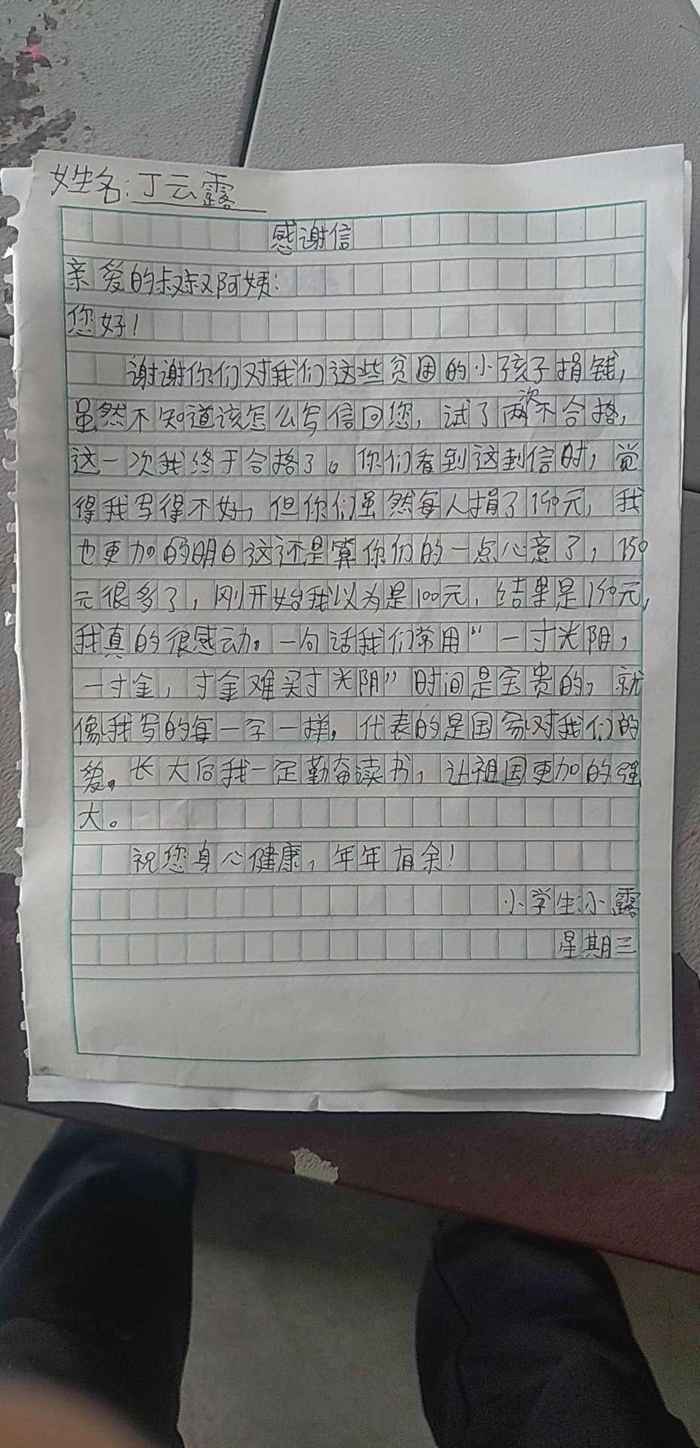 姓名:丁云露
感谢信
亲爱的叔叔阿姨:
您好!
谢谢你们对我们这些贫困的小孩子捐钱,
虽然不知道该怎么写信回您,试了两次不合格,
这一次我终于合格了。你们看到这封信时,觉
得我写得不好,但你们虽然每人捐了150元,我
也更加的明白这还是算你们的一点心意了,150
元很多了,刚开始我以为是100元,结果是150元,
我真的很感动。一句话我们常用“一寸光阴,
一寸金,寸金难买寸光阴”时间是宝贵的,就
像我写的每一字一样,代表的是国家对我们的
爱。长大后我一定勤奋读书,让祖国更加的强
大。
祝您身心健康,年年有余!
小学生:小露
星期三